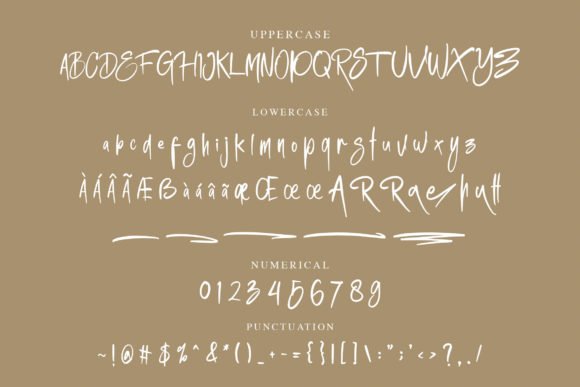 UPPERCASE
ABCDEFGHIJKLMNOPQRSTUVWXYZ
LOWERCASE
abcdefghijklmnopqrstuvwxyz
ÀÁÂÃÆßàáâãæŒœœARRaehutt
NUMERICAL
0123456789
PUNCTUATION
~!@#$%^&*()_+-={}|[]\:";'<>?,./